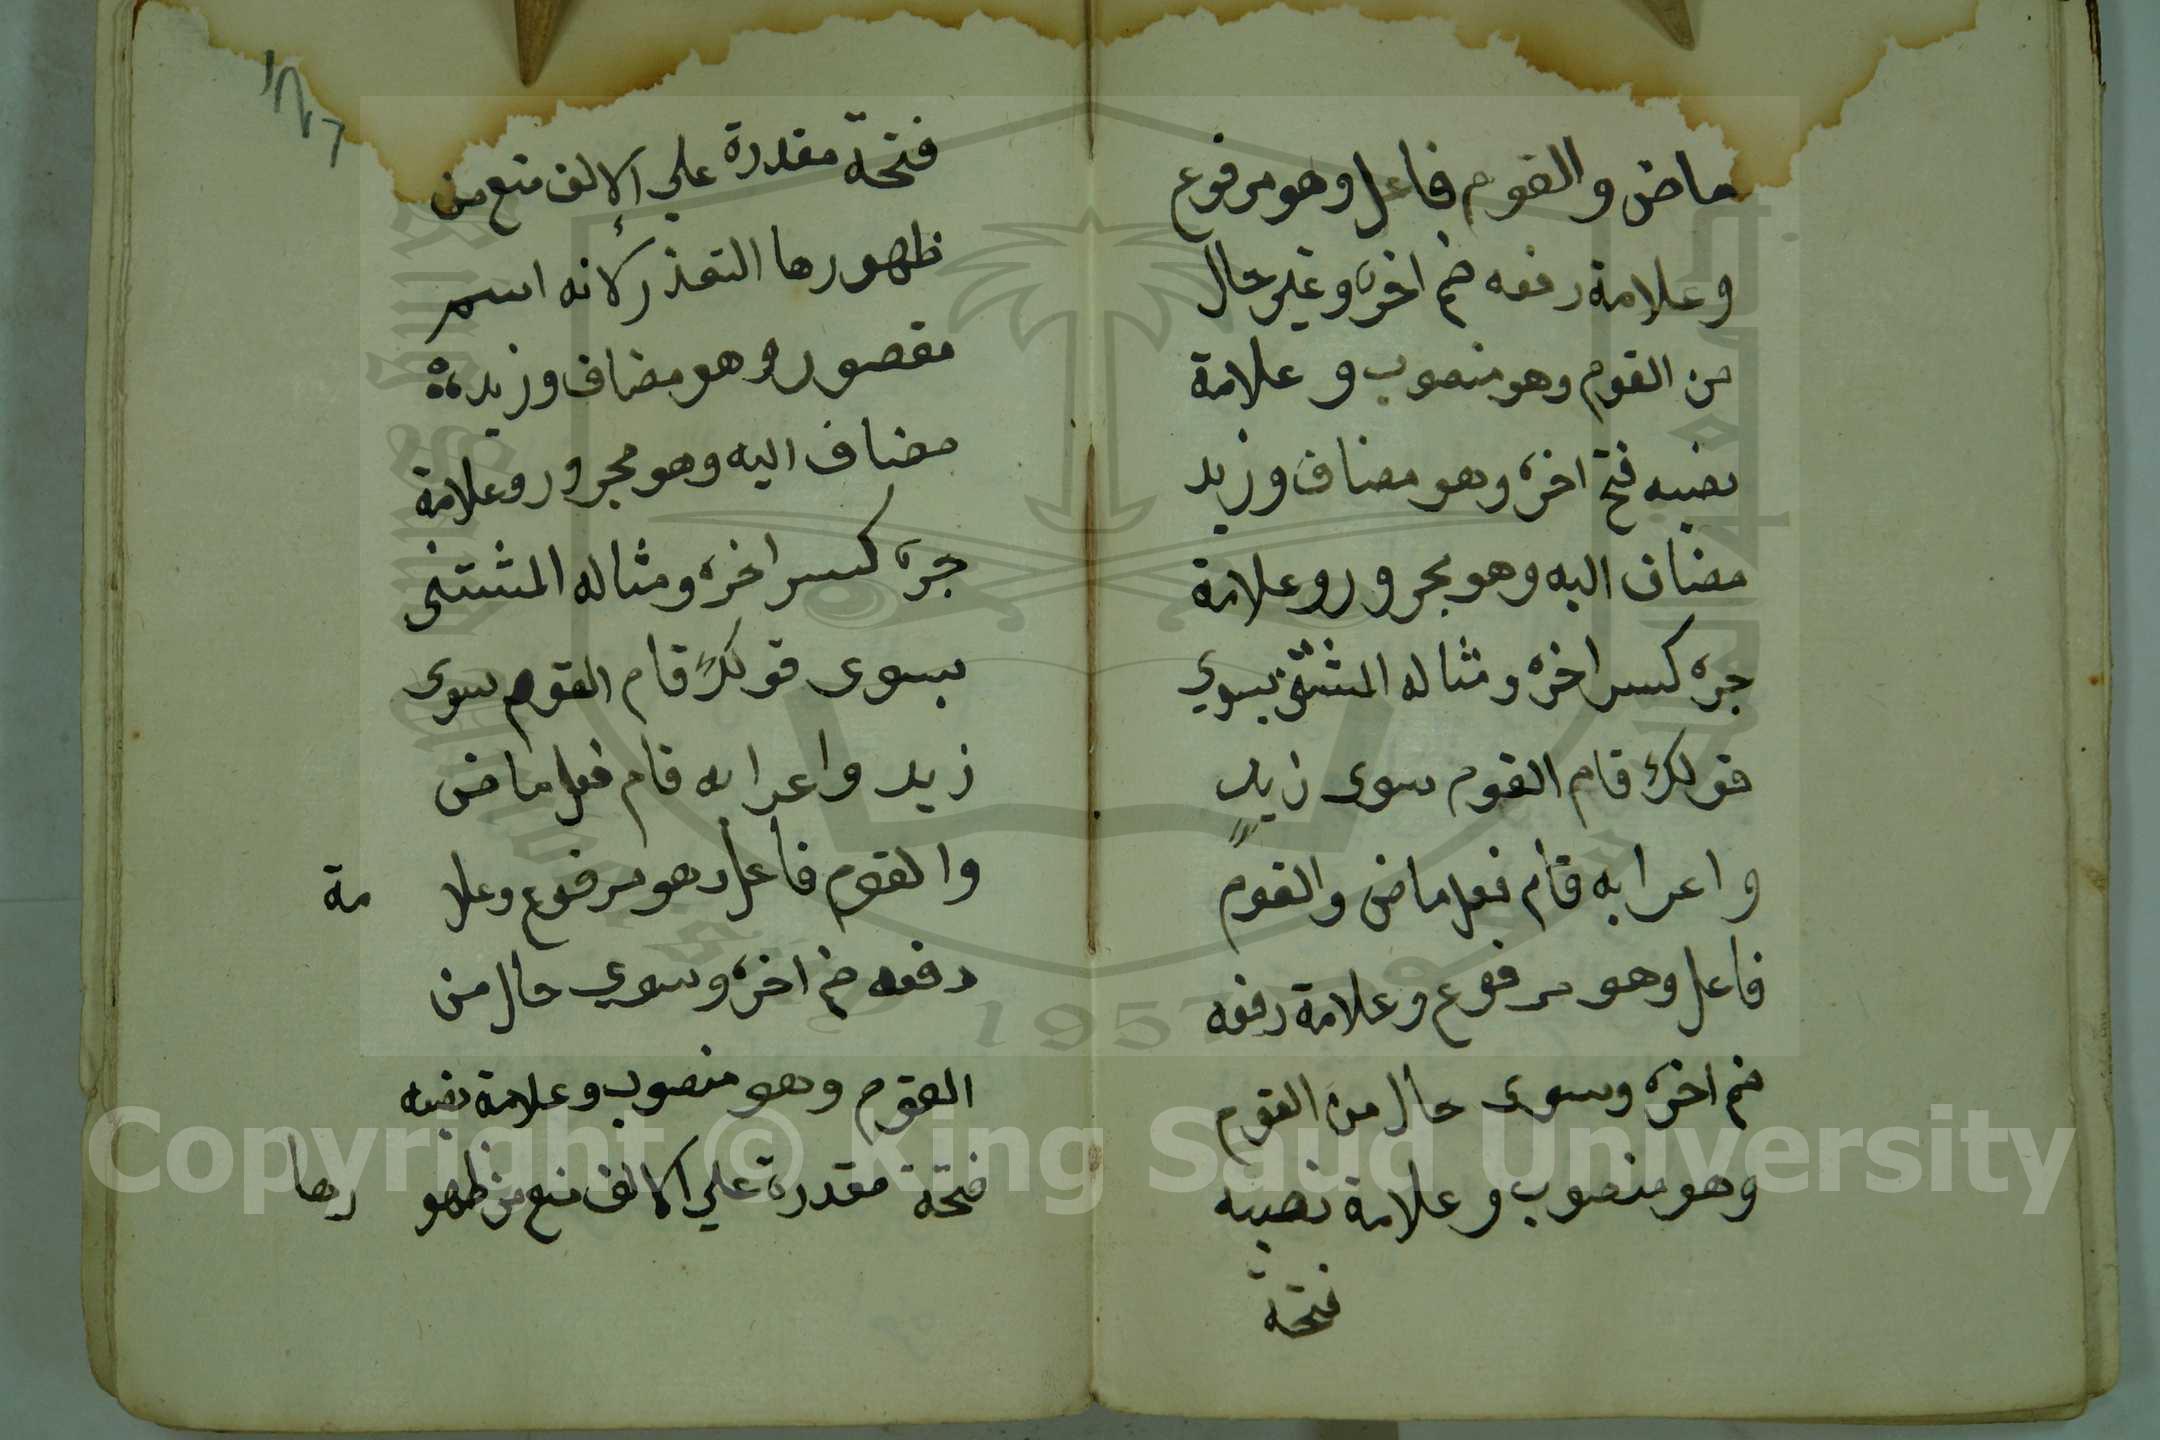 ماض والقوم فاعل وهو مرفوع
وعلامة رفعه ضم اخره وغير حال
من القوم وهو منصوب وعلامة
نصبه فتح اخره وهو مضاف وزيد
مضاف اليه وهو مجرور وعلامة
جره كسر اخره ومثاله المثتثنى بسوي
قولك قام القوم سوى زيدٍ
واعرابه قام فعل ماض والقوم
فاعل وهو مرفوع وعلامة رفعه
ضم اخره وسوى حال من القوم
وهو منصوب وعلامة نصبه
فتحة
فتحة مقدرة علي الالف منع من
ظهورها التعذر لانه اسم
مقصور وهو مضاف وزيد
مضاف اليه وهو مجرور وعلامة
جره كسر اخره ومثاله المشتثنى
بسوى قولك قام القوم سوى
زيد واعرابه قام فعل ماض
والقوم فاعل وهو مرفوع وعلامة
رفعه ضم اخره وسوي حال من
القوم وهو منصوب وعلامة نصبه
فتحة مقدرة علي الالف منع من ظهورها
1957
Copyright © King Saud University